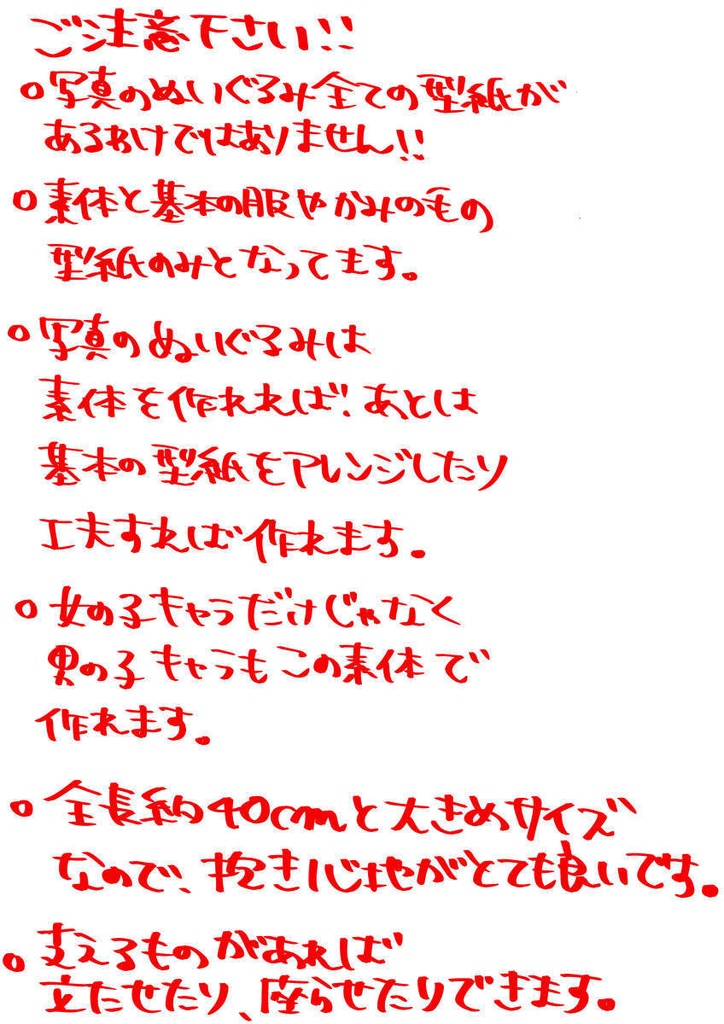 ご注意下さい!!
○写真のぬいぐるみ全ての型紙が
あるわけではありません!!
○素体と基本の服やかみのもの
型紙のみとなってます。
○写真のぬいぐるみは
素体を作れれば!あとは
基本の型紙をアレンジしたり
工夫すれば作れます。
○女の子キャラだけじゃなく
男の子キャラもこの素体で
作れます。
○全長約40cmと大きめサイズ
なので、抱きじ地がとても良いです。
○支えるものがあれば
立たせたり、座らせたりできます。